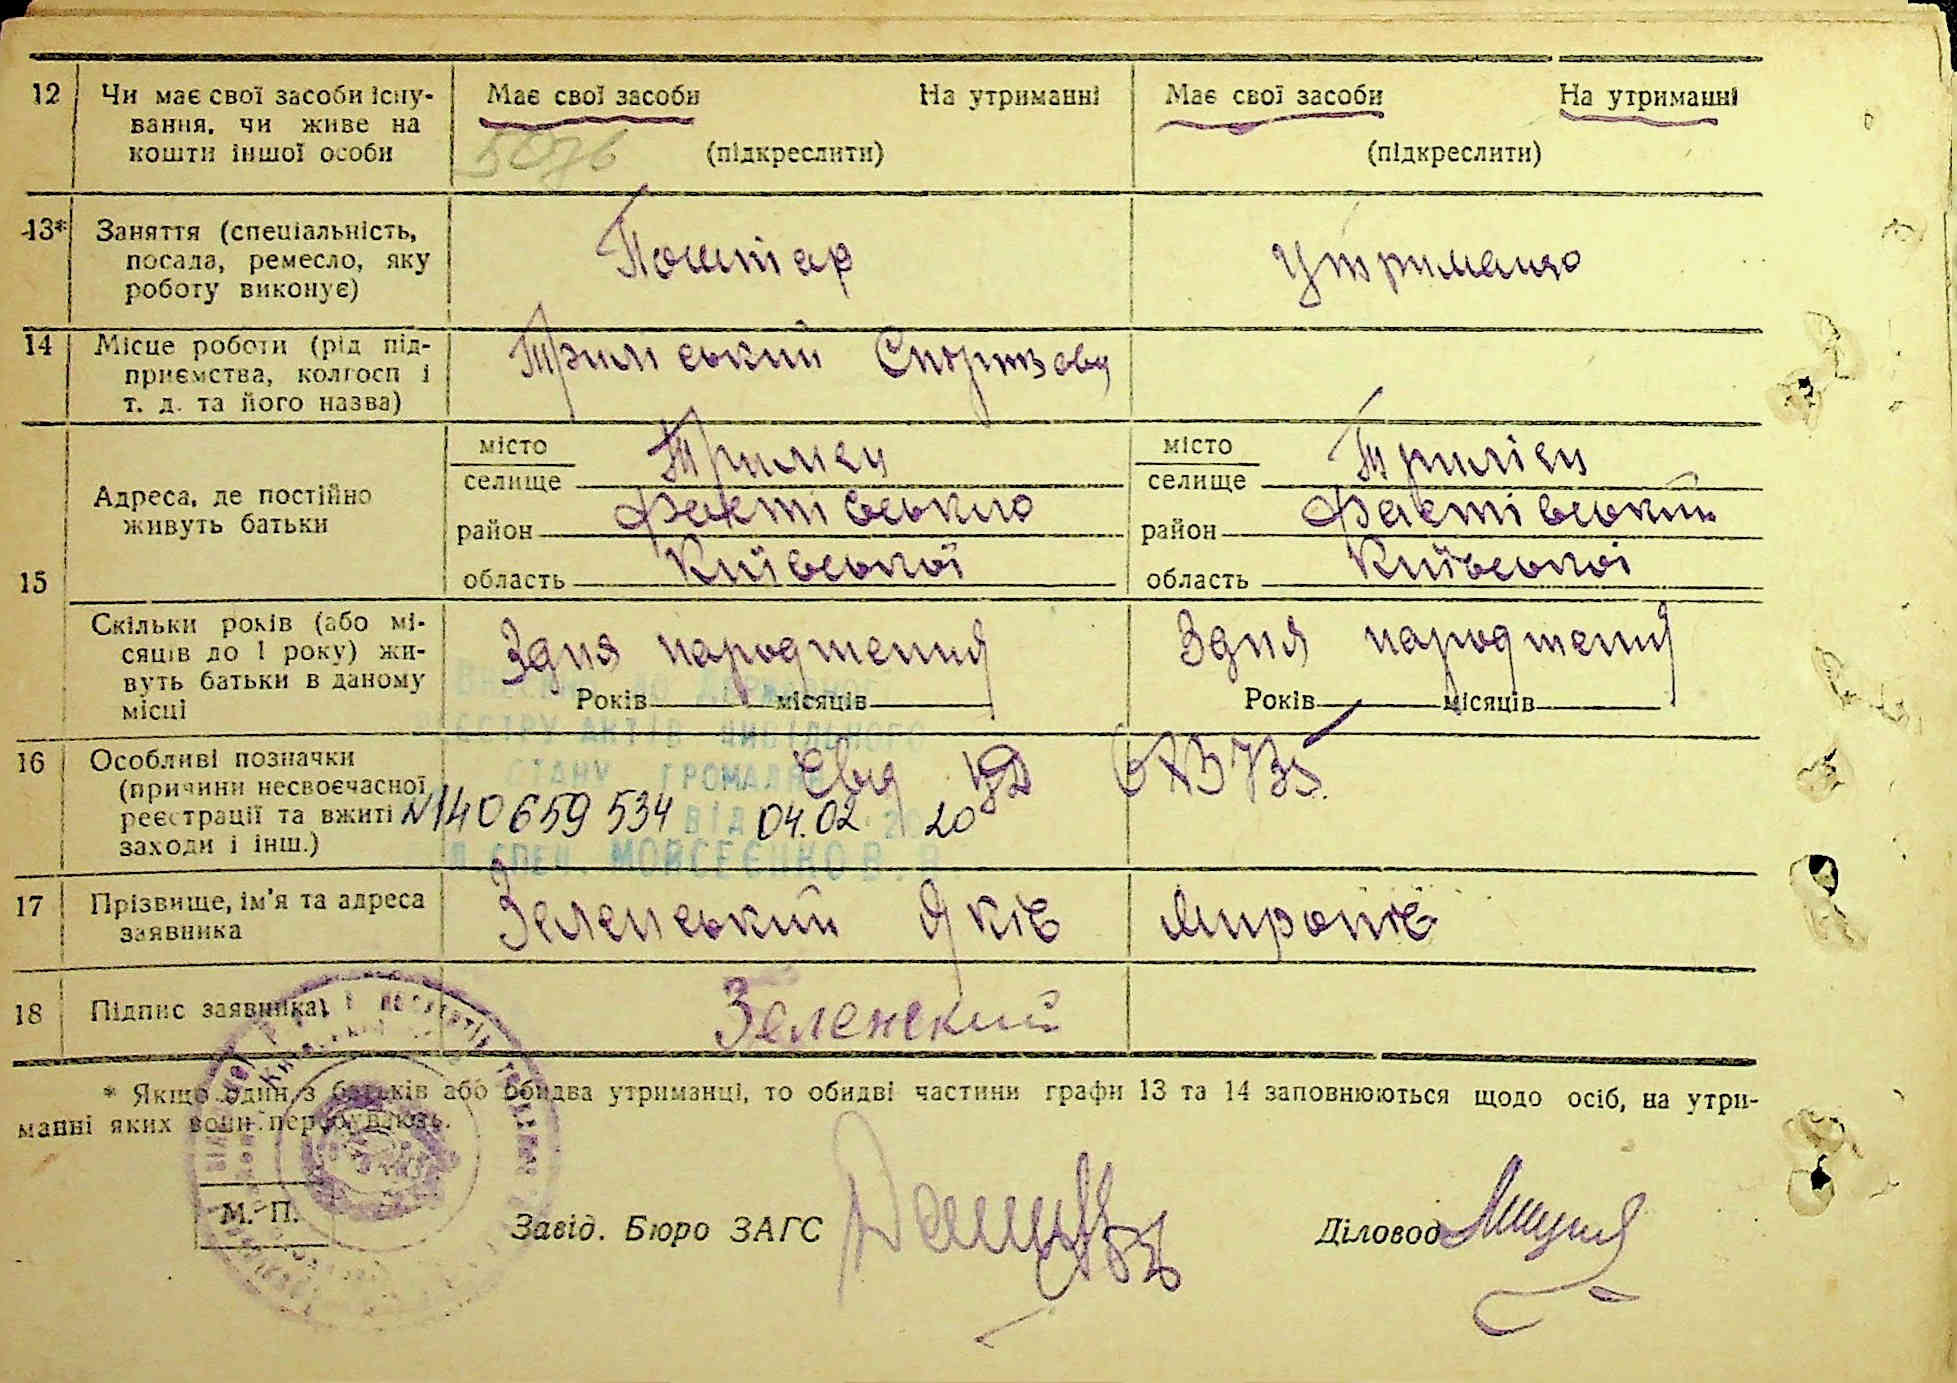 12 Чи має свої засоби існу- Має свої засоби На утриманні Має свої засоби На утриманні
вання, чи живе на
кошти іншої особи 5076 (підкреслити) (підкреслити)
13* Заняття (спеціальність,
посада, ремесло, яку Поштар Утриманю
роботу виконує)
14 Місце роботи (рід під-
приємства, колгосп і
т. д. та його назва)
місто Трилеси місто Триліси
Адреса, де постійно селище селище
живуть батьки район Фастівського район Фастівський
область Київської область Київської
15
Скільки років (або мі-
сяців до 1 року) жи- Здня народження Здня народження
вуть батьки в даному
місці Років місяців Років місяців
ДО ДЕРЖАВНОГО
РЕЄСТРУ АКТІВ ЦИВІЛЬНОГО
16 Особливі позначки Свид
СТАНУ ГРОМАДЯН
(причини несвоєчасної
реєстрації та вжиті №140659534 ВІД 04.02 20
заходи і інш.) СПЕЦ. МОЙСЕЄНКО В.
17 Прізвище, ім'я та адреса Зеленський Яків Миронів
заявника
18 Підпис заявника Зеленский
* Якщо один з батьків або обидва утриманці, то обидві частини графи 13 та 14 заповнюються щодо осіб, на утри-
манні яких вони перебувають.
М. П. Завід. Бюро ЗАГС Діловод